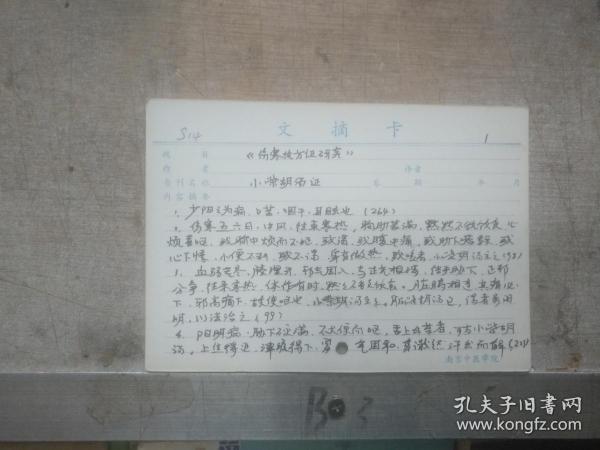 文摘卡
S14
1
题 目 《伤寒技方证研究》
作 者
书刊名称 小柴胡汤证 卷 期 年 月
内容摘要
1、少阳之为病,口苦,咽干,目眩也(264)
2、伤寒五六日,中风,往来寒热,胸胁苦满,默默不欲饮食,心
烦喜呕,或胸中烦而不呕,或渴,或腹中痛,或胁下痞鞕,或
心下悸,小便不利,或不渴,身有微热,或咳者,小柴胡汤主之
3、血弱气尽,腠理开,邪气因入,与正气相搏,结于胁下,正邪
分争,往来寒热,休作有时,默默不欲饮食。脏腑相连,其痛必
下,邪高痛下,故使呕也,小柴胡汤主之。服柴胡汤已,渴者属阳
明,以法治之(99)
4、阳明病,胁下硬满,不大便而呕,舌上白苔者,可与小柴胡
汤,上焦得通,津液得下,胃气因和,身濈然汗出而解
南京中医学院
B 3
孔夫子旧书网
www.kongfz.com